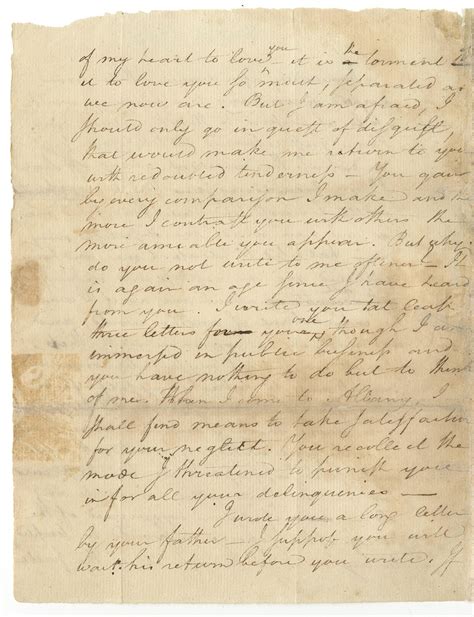 of my heart to love you it is the torment
it to love you so much, separated as
we now are. But I am afraid, I
should only go in quest of disquiet,
that would make me return to you
with redoubled tenderness— You gain
by every comparison I make and the
more I contrast you with others the
more amiable you appear. But why
do you not write to me oftener— It
is again an age since I have heard
from you. I write you at least
three letters for your one, though I am
immersed in public business and
you have nothing to do but to think
of me. When I come to Albany, I
shall find means to take satisfaction
for your neglect. You recollect the
mode I threatened to punish you
in for all your delinquencies—
I wrote you a long letter
by your father— I suppose you will
wait his return before you write. If